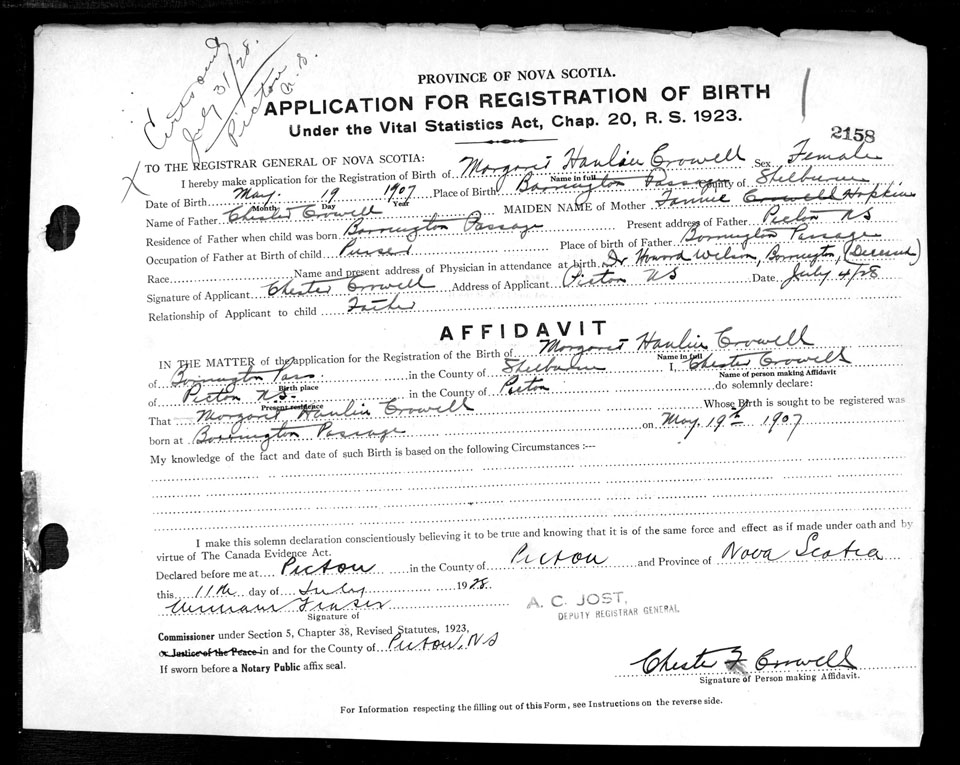 Cert sent
July 31/28.
Pictou
N.S.
PROVINCE OF NOVA SCOTIA.
APPLICATION FOR REGISTRATION OF BIRTH
Under the Vital Statistics Act, Chap. 20, R. S. 1923.
2158
X TO THE REGISTRAR GENERAL OF NOVA SCOTIA:
I hereby make application for the Registration of Birth of Margaret Hanlin Crowell Sex Female
Name in full
Date of Birth May 19 1907 Place of Birth Barrington Passage County of Shelburne
Month Day Year
Name of Father Chester Crowell MAIDEN NAME of Mother Fannie Crowell Hopkins
Residence of Father when child was born Barrington Passage Present address of Father Pictou NS
Occupation of Father at Birth of child Place of Birth of Father Barrington Passage
Race Name and present address of Physician in attendance at birth Dr Wilson, Barrington, (Deceased)
Signature of Applicant Chester Crowell Address of Applicant Pictou NS Date July 4/28
Relationship of Applicant to child Father
AFFIDAVIT
IN THE MATTER of the application for the Registration of the Birth of Margaret Hanlin Crowell
Name in full
of Barrington Pass in the County of Shelburne I, Chester Crowell
Birth place Name of person making Affidavit
of Pictou NS. in the County of Pictou do solemnly declare:
Present residence
That Margaret Hanlin Crowell Whose Birth is sought to be registered was
born at Barrington Passage on May 19th 1907
My knowledge of the fact and date of such Birth is based on the following Circumstances :---
I make this solemn declaration conscientiously believing it to be true and knowing that it is of the same force and effect as if made under oath and by
virtue of The Canada Evidence Act.
Declared before me at Pictou in the County of Pictou and Province of Nova Scotia
this 11th day of July 1928.
Fraser
Signature of
A. C. JOST,
DEPUTY REGISTRAR GENERAL
Commissioner under Section 5, Chapter 38, Revised Statutes, 1923,
or Justice of the Peace in and for the County of Pictou, NS
If sworn before a Notary Public affix seal.
Chester F Crowell
Signature of Person making Affidavit.
For Information respecting the filling out of this Form, see Instructions on the reverse side.